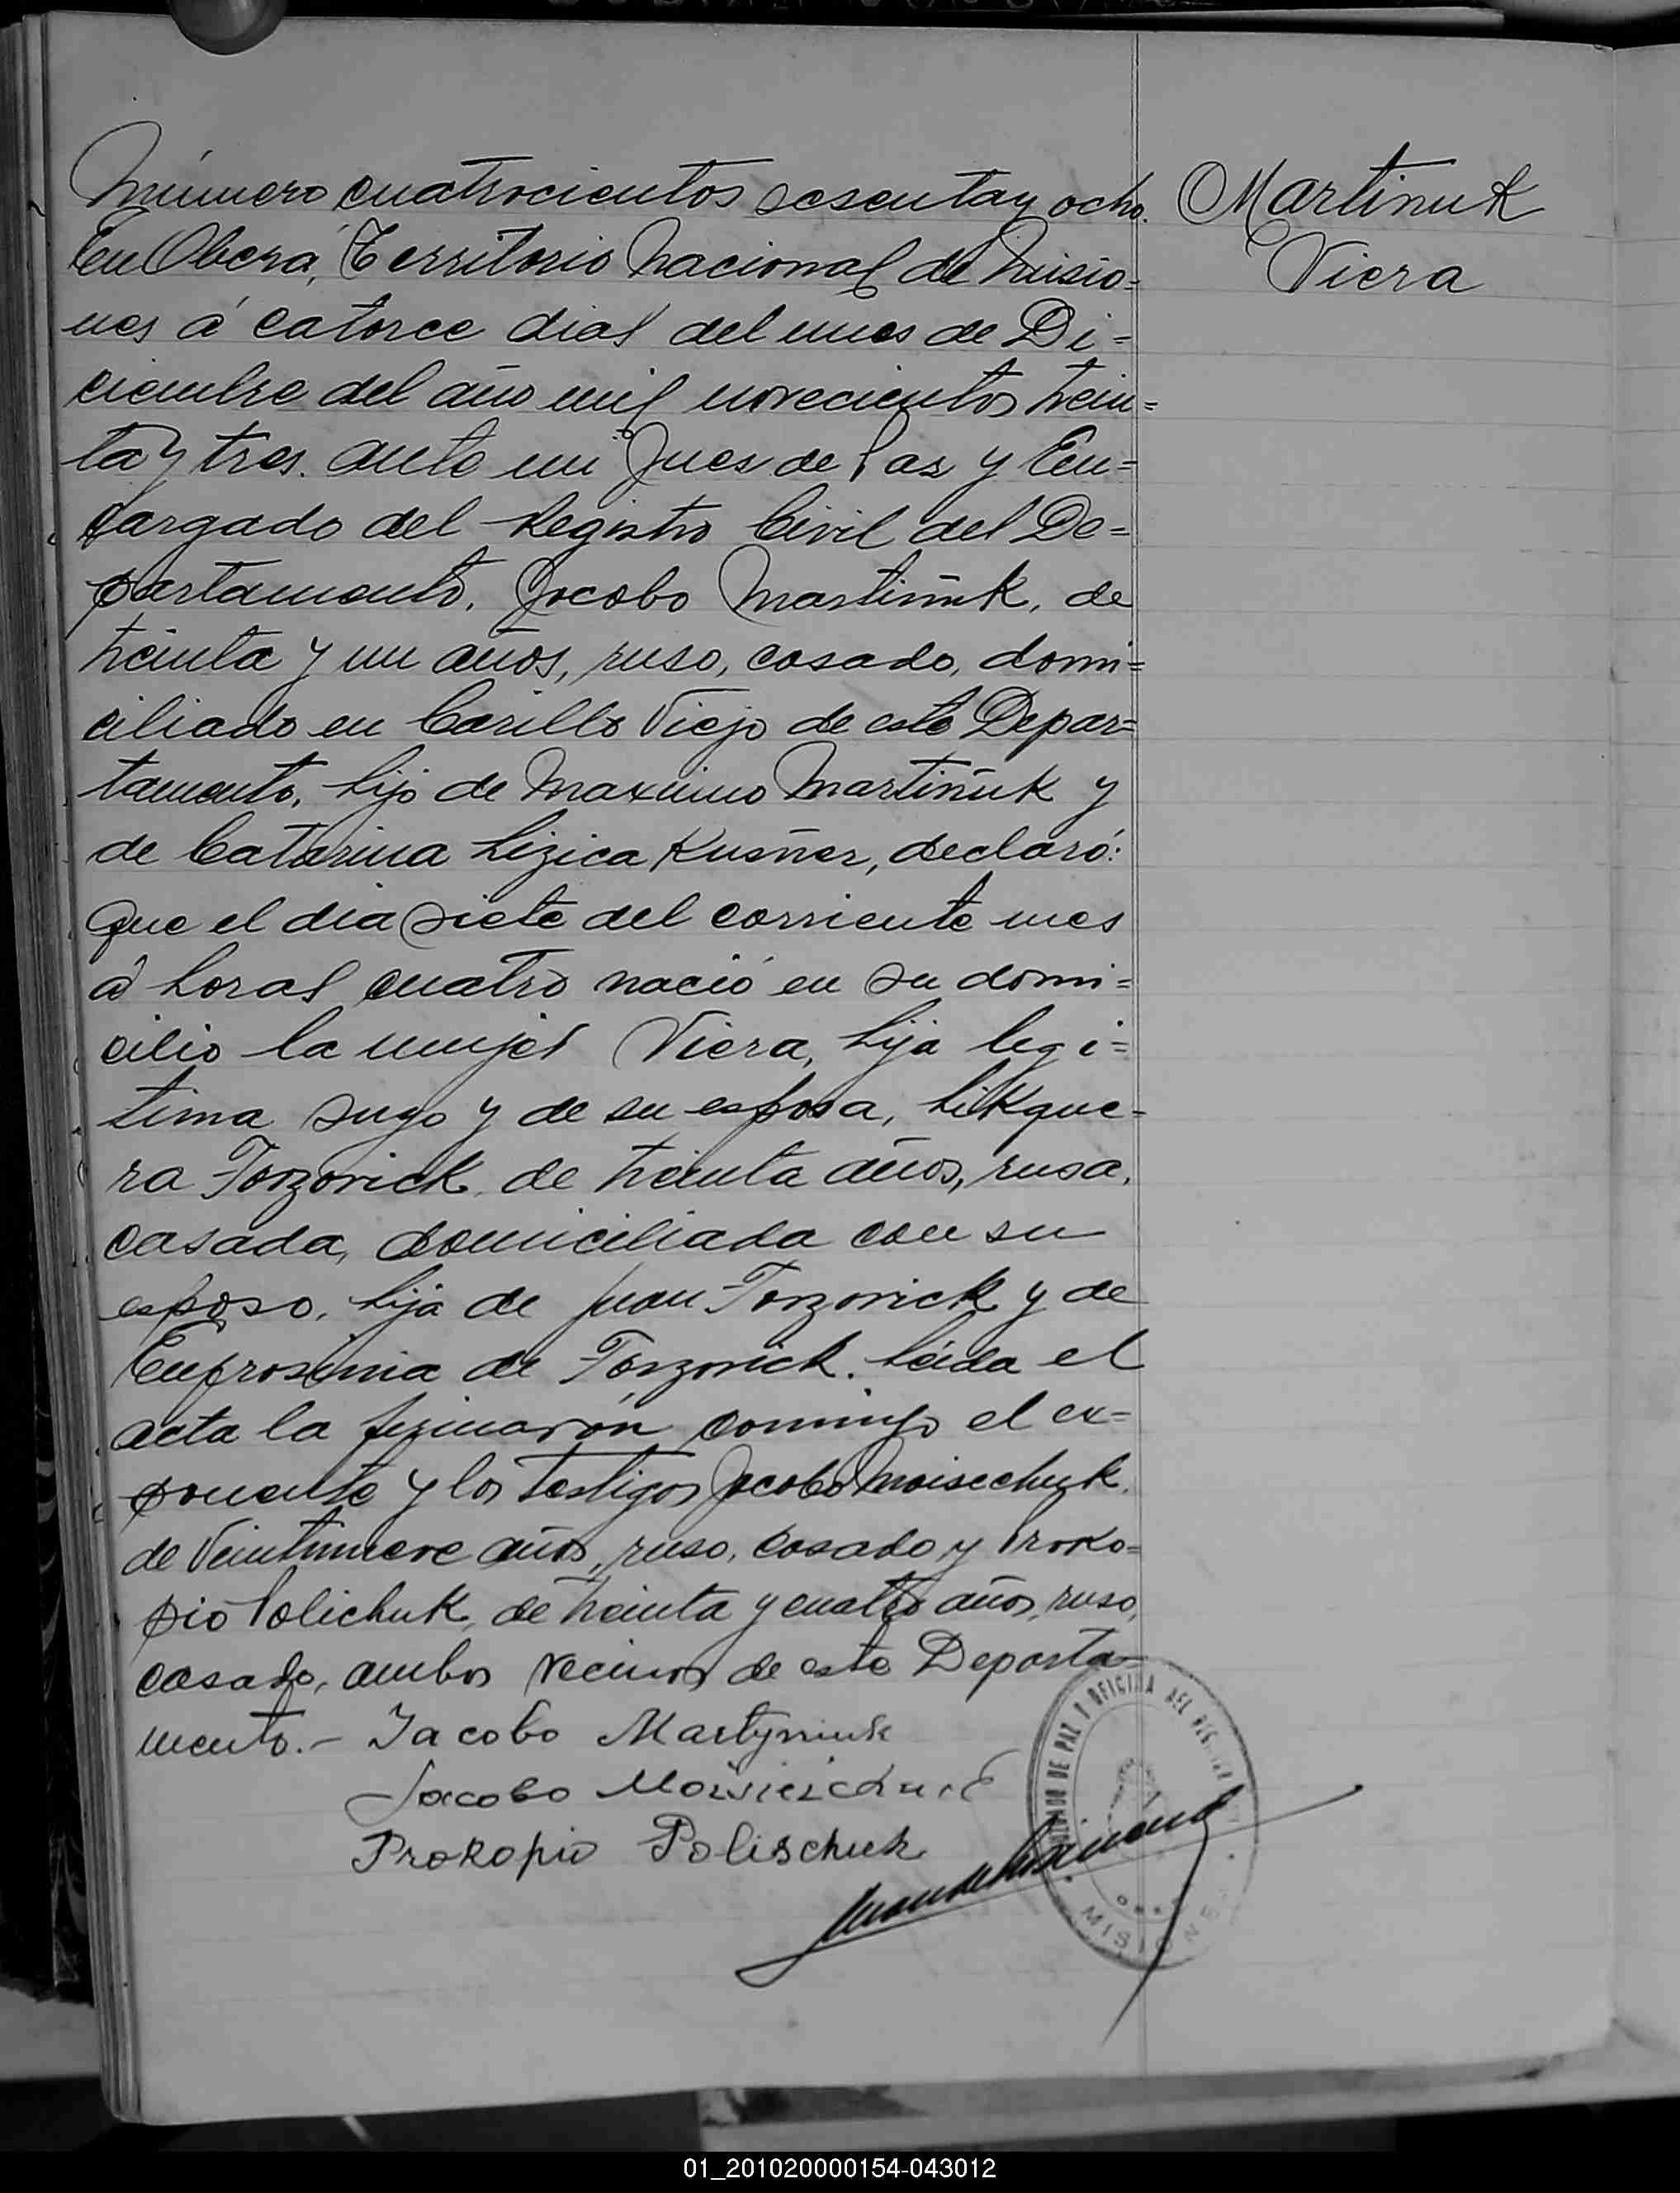 Número cuatrocientos sesentay ocho.
En Oberá, Territorio Nacional de Misio=
nes á catorce dias del mes de Di=
ciembre del año mil novecientos trein=
ta y tres. ante mi Jues de Pas y En=
cargado del Registro Civil del De=
partamento, Jocobo Martiñuk, de
treinta y un años, ruso, casado, domi=
ciliado en Cerillo Viejo de este Depar=
tamento, hijo de Maximo Martiñuk y
de Catarina Lizica Kusñer, declaró:
que el dia siete del corriente mes
á horas cuatro nació en su domi=
cilio la mujer Viera, hija legi=
tima suyo y de su esposa, Likque=
ra Torzovick, de treinta años, rusa,
casada, domiciliada con su
esposo, hija de Juan Torzovick y de
Eufrosinia de Torzovick. Leida el
acta la firmaron conmigo el ex=
ponente y los testigos Jocobo Moisechuk,
de Veintinueve años, ruso, casado y Proko=
pio Polichuk, de treinta y cuatro años, ruso,
casado, ambos vecinos de este Departa
mento.- Jacobo Martyniuk
Jacobo
Prokopio Polischuk
Martinuk
Viera
JUZGADO DE PAZ Y OFICINA DEL
MISIONES
01_201020000154-043012